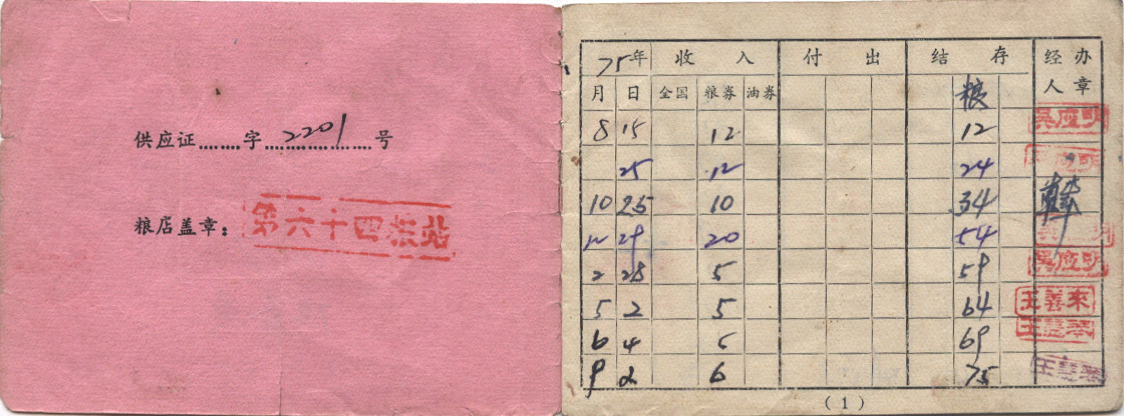 供应证........字 2201 号
粮店盖章：第六十四粮站
75年 收入 付出 结存 经办人章
月 日 全国 粮券 油券 粮
8 15 12 12 吴应明
25 12 24 应明
10 25 10 34
12 29 20 54
2 28 5 59 吴应明
5 2 5 64 王善来
6 4 5 69 王善来
9 2 6 75 王善来
(1)